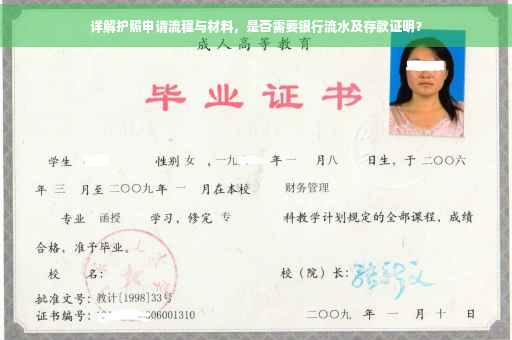 详解护照申请流程与材料，是否需要银行流水及存款证明？
成人高等教育
毕业证书
学生 性别 女 ，一九 年 一 月八 日生，于 二〇〇六
年 三 月至 二〇〇九 年 一 月在本校 财务管理
专业 函授 学习，修完 专 科教学计划规定的全部课程，成绩
合格，准予毕业。
校 名： 校（院）长：
批准文号：教计[1998]33号
证书编号： 06001310 二〇〇九 年 一 月 十 日